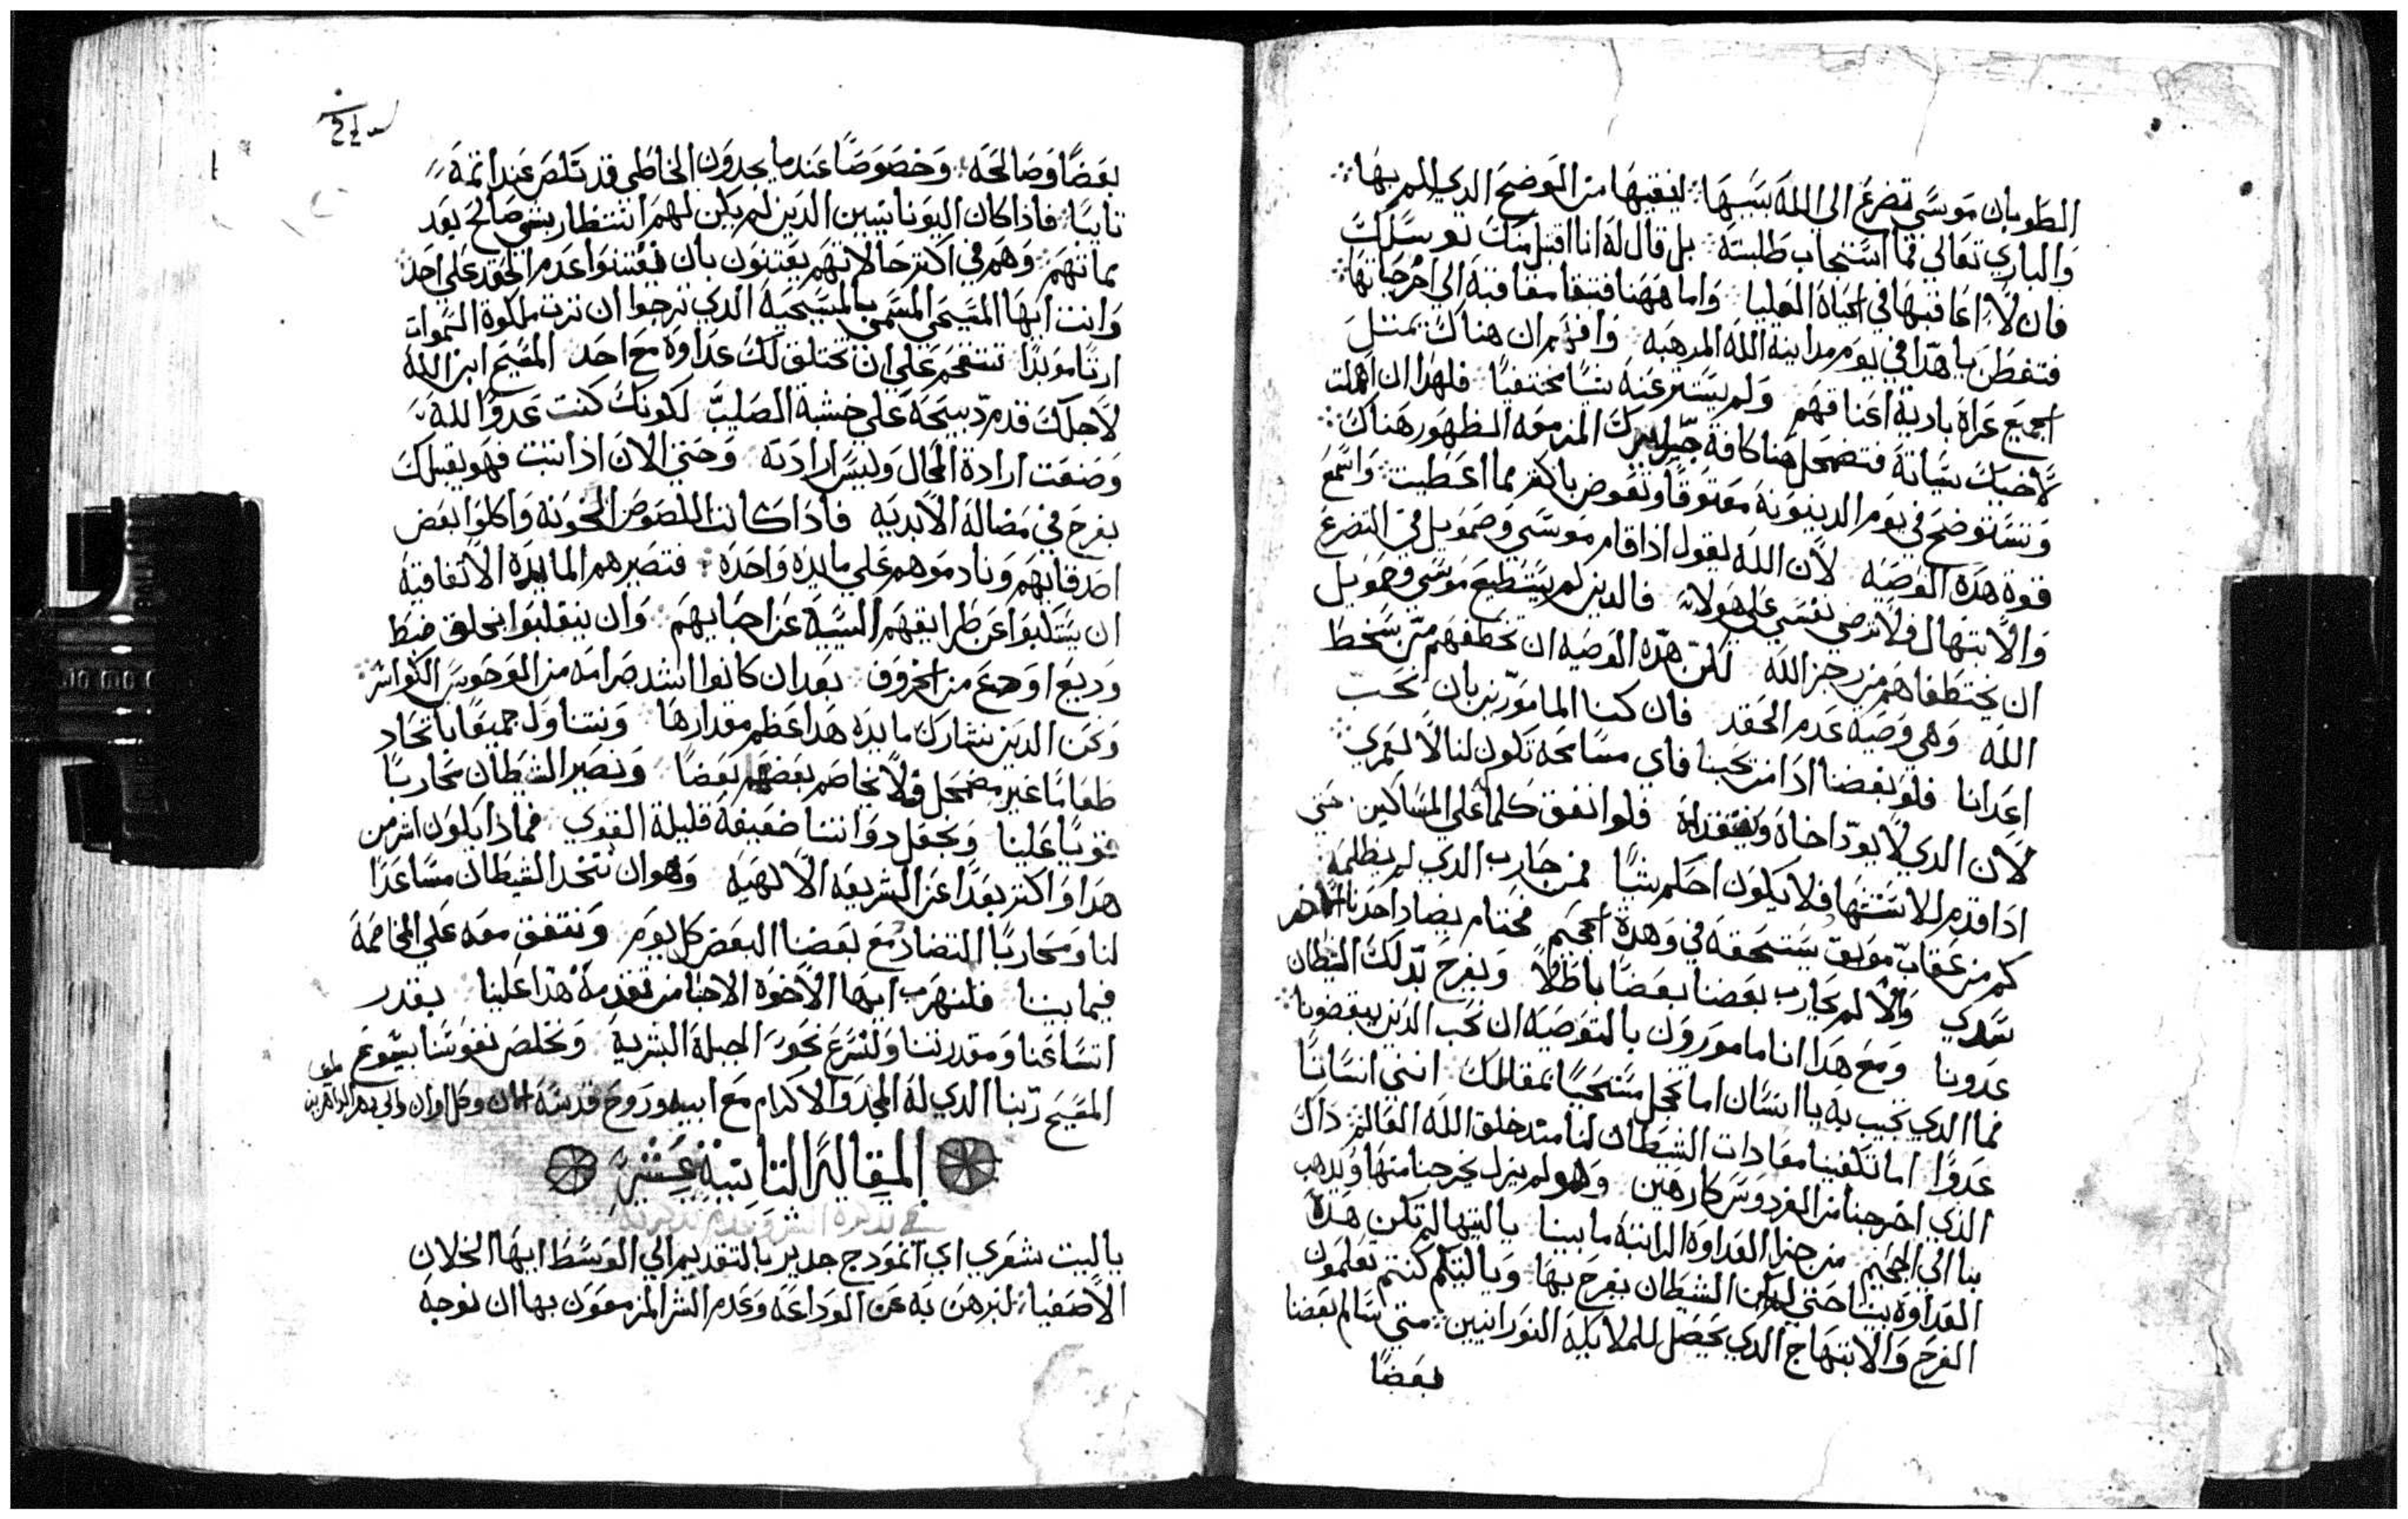 الطوبان موسي تضرع الي الله بسببها لينقيها من الوضح الدي الم بها
والباري تعالي فما استجاب طلبته بل قال له انا اقبل منك توسلك
فان لا اعاقبها في الحياة العليا واما ههنا فتنقا معاقبة الي اخر حياتها
فتفطن يا هدا في يوم مداينة الله المرهبه وافهم ان هناك يمتثل
الجميع عراة بادية اعناقهم ولم يستتر عنه شيا مختفيا فلهدا ان اهملت
لاخيك سياته فتضمحل هنا كافة المزمعه الظهور هناك
وتستوضح في يوم الدينونة معتوقا وتعوض باكثر مما اعطيت واسمع
قوة هده الوصيه لان الله يقول اذا قام موسي وصمويل في التضرع
والابتهال فلا ترضي نفسي علي هولاء فالدين لم يستطيع موسي وصمويل
ان يختطفاهم من رجز الله لكن هده الوصيه ان تخطفهم من سخط
الله وهي وصية عدم الحقد فان كنا المامورين بان نحب
اعدانا فلو بغضنا ادا من يحبنا فاي مسامحه تكون لنا لا لعمري
لان الدي لا يود اخاه ويفتقداه فلو انفق كلما علي المساكين حتي
ادا قدم للاستشهاد فلا يكون احكم شيا فمن حارب الدي لم يظلمه
كم من عقاب موبق يستحقه في وهدة الجحيم فحتام يضاد احدنا الاخر
سدي والام يحارب بعضنا بعضا باطلا ويفرح بدلك الشيطان
عدونا ومع هدا انا مامورون بالتوصيه ان نحب الدين يبغضونا
فما الدي تجيب به يا انسان اما تخجل مستحيا بمقالك انني انسانا
عدوا اما تكفينا معادات الشيطان لنا مند خلق الله العالم داك
الذي اخرجنا من الفردوس كارهين وهو لم يزل يخرجنا منها ويدهب
بنا الي الجحيم من جرا العداوة الداتية ما بيننا يا ليتها لم تكن هده
العداوة بيننا حتي لم يكن الشيطان يفرح بها ويا ليتكم كنتم تعلمون
الفرح والابتهاج الدي يحصل للملايكة النورانيين متي سالم بعضنا
بعضا
بعضا وصالحه وخصوصا عندما يجدون الخاطي قد تملص عند اثمه
تايبا فادا كان اليونانيين الدين لم يكن لهم انتظار بشي صالح بعد
مماتهم وهم في اكثر حالاتهم يعتنون بان يقتنوا عدم الحقد علي احد
وانت ايها المسيحي المسمي بالمسيحية الدي ترجوا ان ترث ملكوة السموات
ارثا موبدا تتقحم علي ان تختلق لك عداوة مع احد المسيح ابن الله
لاجلك قدم دبيحة علي خشبة الصليب لكونك كنت عدوا لله
وصنعت ارادة المحال وليس ارادته وحتي الان اذا تبت فهو يقبلك
بفرح في مضاله الابديه فادا كانت اللصوص الخونه واكلوا بعض
اصدقايهم ونادموهم علي مايده واحده فتصيرهم المايده الاتفاقية
ان يستلبوا عن طرايقهم السيية عن احبايهم وان ينقلبوا بخلق ضبط
وديع اوضع من الخروف بعد ان كانوا اشد صرامه من الوحوش الكواسر
ونحن الدين نتشارك مايده هدا عظم مقدارها ونتناول جميعا باتحاد
طعاما غير مضمحل فلا نخاصم بعضهم بعضا ونصير الشيطان محاربا
قويا علينا ونجعل دواتنا ضعيفة قليلة القوي فماذا يكون اشر من
هدا واكثر بعدا عن الشريعه الالهيه وهو ان نتخد الشيطان مساعدا
لنا ومحاربا التضاد مع بعضنا البعض كل يوم ونتفق معه علي المخاصمة
فيما بيننا فلنهرب ايها الاخوه الاحبا من تقدمة هدا علينا بقدر
اتساعنا ومقدرتنا ولنسرع نحو الجبلة البشرية ونخلص نفوسنا بيسوع
المسيح ربنا الدي له المجد والاكرام مع ابيه وروح قدسه الان وكل اوان والي دهر الداهرين
المقالة الثانية عشر
ياليت شعري اي انمودج جدير بالتقديم الي الوسط ايها الخلان
الاصفياء لنبرهن به عن الوداعة وعدم الشر المزمعون بها ان نوجه